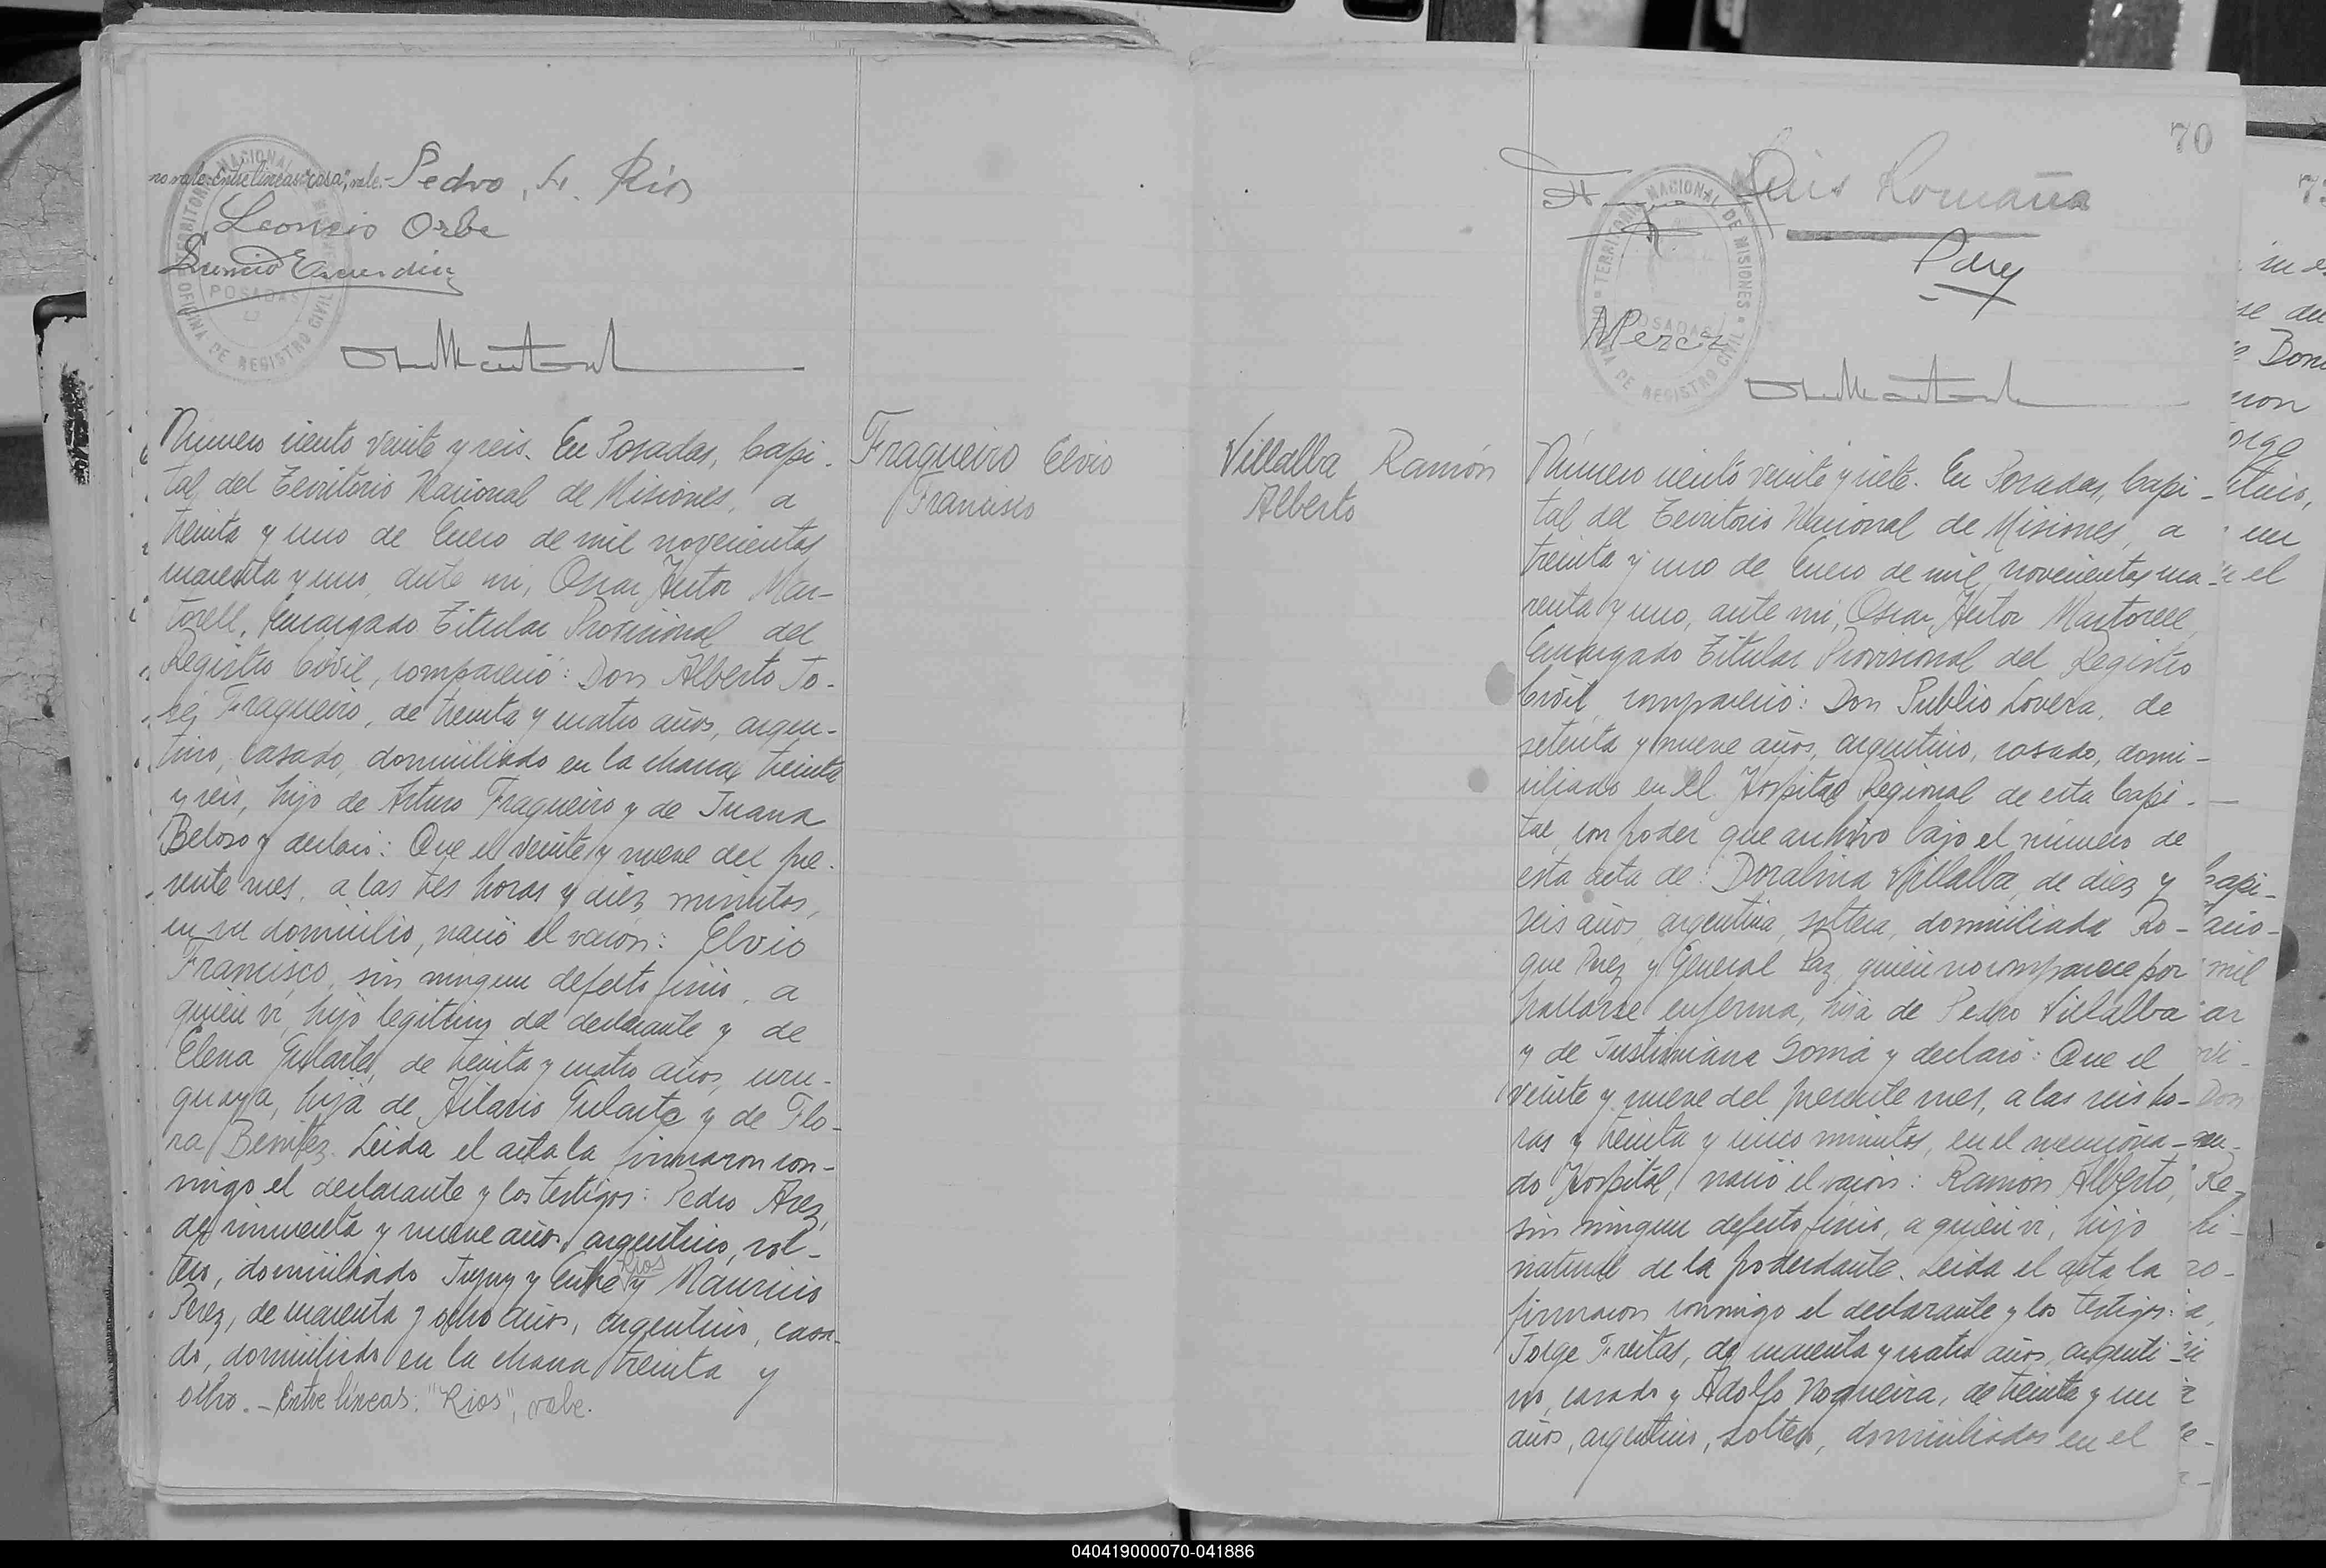 no vale. Entre líneas: "casa", vale.- Pedro, L. Ríos
Leoncio Orbe
TERRITORIO NACIONAL DE MISIONES
POSADAS
OFICINA DE REGISTRO CIVIL
Número ciento veinte y seis. En Posadas, Capi-
tal del Territorio Nacional de Misiones, a
treinta y uno de Enero de mil novecientos
cuarenta y uno, ante mi, Oscar Hector Mar-
torell, Encargado Titular Provisional del
Registro Civil, compareció: Don Alberto Jo-
sé Fragueiro, de treinta y cuatro años, argen-
tino, casado, domiciliado en la chacra treinta
y seis, hijo de Arturo Fragueiro y de Juana
Beloso y declaró: Que el veinte y nueve del pre-
sente mes, a las tres horas y diez minutos,
en su domicilio, nació el varón: Elvio
Francisco, sin ningun defecto físico, a
quien vi, hijo legítimo del declarante y de
Elena Gularte, de treinta y cuatro años, uru-
guaya, hija de Hilario Gularte y de Flo-
ra Benitez. Leida el acta la firmaron con-
migo el declarante y los testigos: Pedro Arez,
de cincuenta y nueve años, argentino, sol-
tero, domiciliado Jujuy y Entre Rios y Mauricio
Perez, de cuarenta y ocho años, argentino, casa-
do, domiciliado en la chacra treinta y
ocho. - Entre líneas: "Rios", vale.
Fragueiro Elvio
Francisco
70
Luis Romaña
Perez
TERRITORIO NACIONAL DE MISIONES
POSADAS
OFICINA DE REGISTRO CIVIL
Villalba Ramón
Alberto
Número ciento veinte y siete. En Posadas, Capi-
tal del Territorio Nacional de Misiones, a
treinta y uno de Enero de mil novecientos cua-
renta y uno, ante mi, Oscar Hector Martorell,
Encargado Titular Provisional del Registro
Civil, compareció: Don Publio Lovera, de
setenta y nueve años, argentino, casado, domi-
ciliado en el Hospital Regional de esta Capi-
tal, con poder que archivo bajo el número de
esta acta de: Doralina Villalba, de diez y
seis años, argentina, soltera, domiciliada Ro-
que Perez y General Paz, quien no comparece por
hallarse enferma, hija de Pedro Villalba
y de Justiniana Soma y declaró: Que el
veinte y nueve del presente mes, a las seis ho-
ras y treinta y cinco minutos, en el menciona-
do Hospital, nació el varón: Ramón Alberto,
sin ningun defecto físico, a quien vi, hijo
natural de la poderdante. Leida el acta la
firmaron conmigo el declarante y los testigos:
Jorge Freitas, de cuarenta y cuatro años, argenti-
no, casado y Adolfo Nogueira, de treinta y un
años, argentino, soltero, domiciliados en el
040419000070-041886